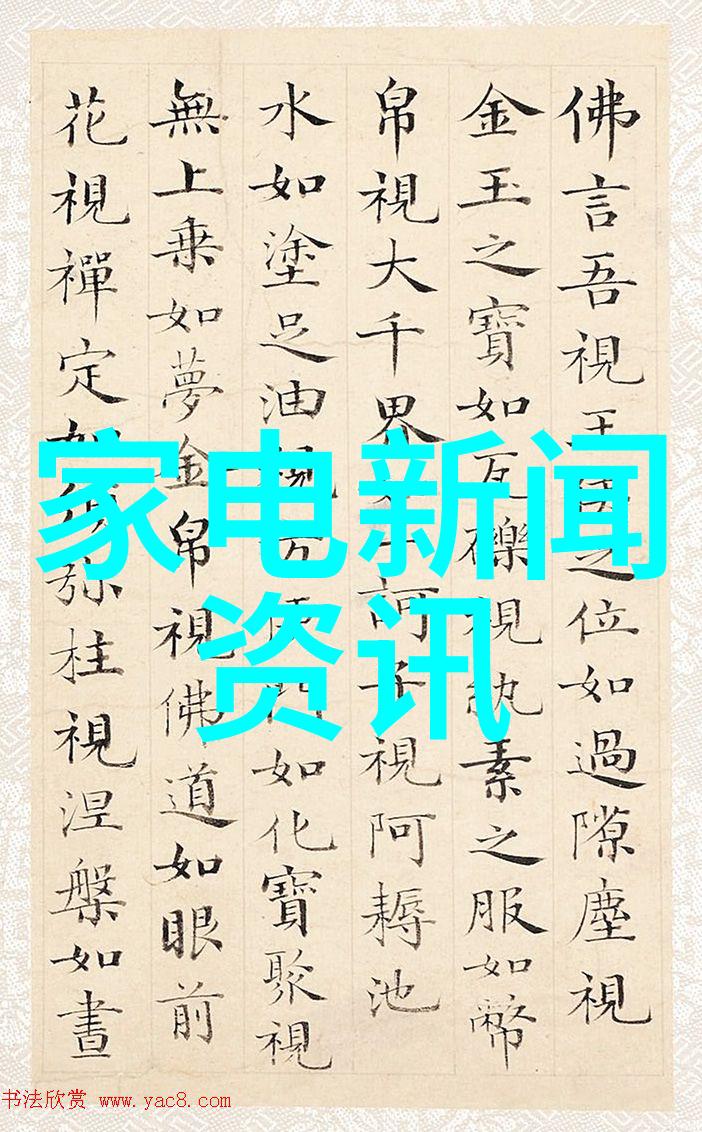 佛言吾視王侯之位如過隙塵視
金玉之寶如瓦礫視紈素之服如幣
帛視大千界如一訶子視阿耨池
水如塗足油視方便門如化寶聚視
無上乗如夢金帛視佛道如眼前
花視禪定如須弥柱視涅槃如晝
家电新闻
资讯
书法欣赏 www.yac8.com